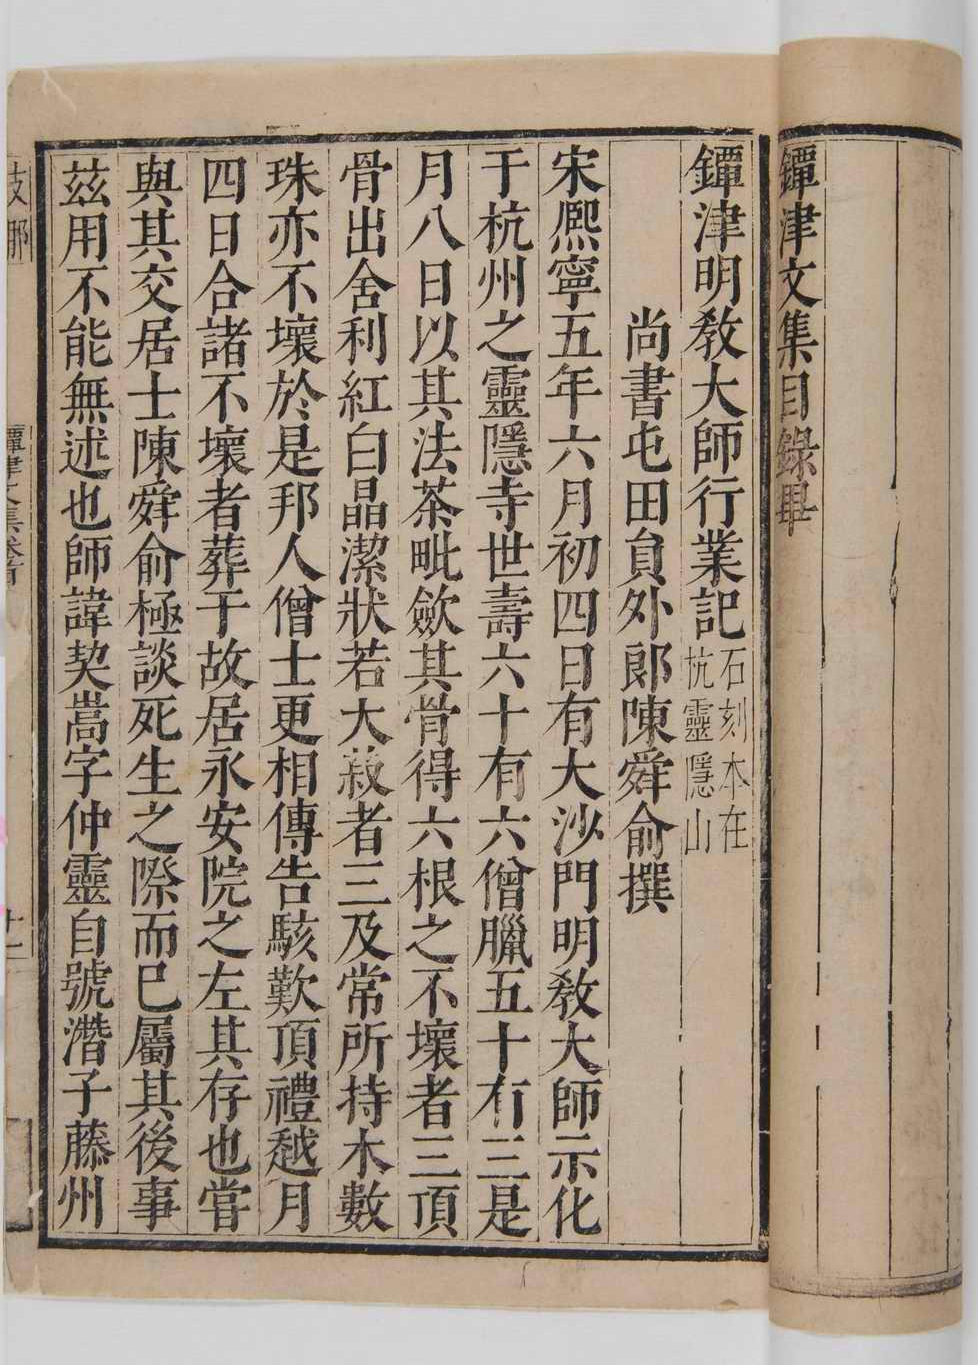 鐔津文集目錄畢
鐔津明敎大師行業記 石刻本在杭靈隱山
尚書屯田員外郎陳舜俞撰
宋熈寧五年六月初四日有大沙門明敎大師示化
于杭州之靈隱寺世壽六十有六僧臘五十有三是
月八日以其法茶毗歛其骨得六根之不壞者三頂
骨出舍利紅白晶潔狀若大菽者三及常所持木數
珠亦不壞於是邦人僧士更相傳告駭歎頂禮越月
四日合諸不壞者葬于故居永安院之左其存也嘗
與其交居士陳舜俞極談死生之際而已屬其後事
茲用不能無述也師諱契嵩字仲靈自號潛子藤州
鐔津文集卷首